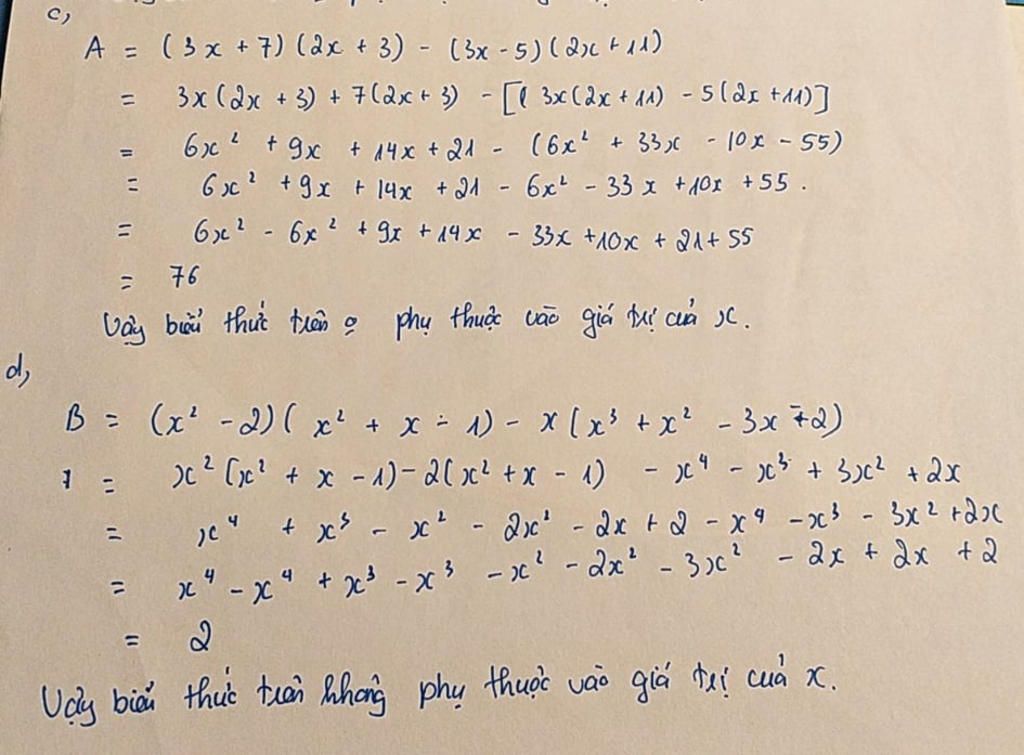 c,
A = (3x + 7)(2x + 3) - (3x - 5)(2x + 11)
= 3x(2x + 3) + 7(2x + 3) - [( 3x(2x + 11) - 5(2x + 11)]
= 6x² + 9x + 14x + 21 - (6x² + 33x - 10x - 55)
= 6x² + 9x + 14x + 21 - 6x² - 33x + 10x + 55.
= 6x² - 6x² + 9x + 14x - 33x + 10x + 21 + 55
= 76
Vậy biểu thức trên phụ thuộc vào giá trị của x.
d,
B = (x² - 2)(x² + x - 1) - x(x³ + x² - 3x 2)
= x²(x² + x - 1) - 2(x² + x - 1) - x⁴ - x³ + 3x² + 2x
= x⁴ + x³ - x² - 2x² - 2x + 2 - x⁴ - x³ - 3x² + 2x
= x⁴ - x⁴ + x³ - x³ - x² - 2x² - 3x² - 2x + 2x + 2
= 2
Vậy biểu thức trên không phụ thuộc vào giá trị của x.